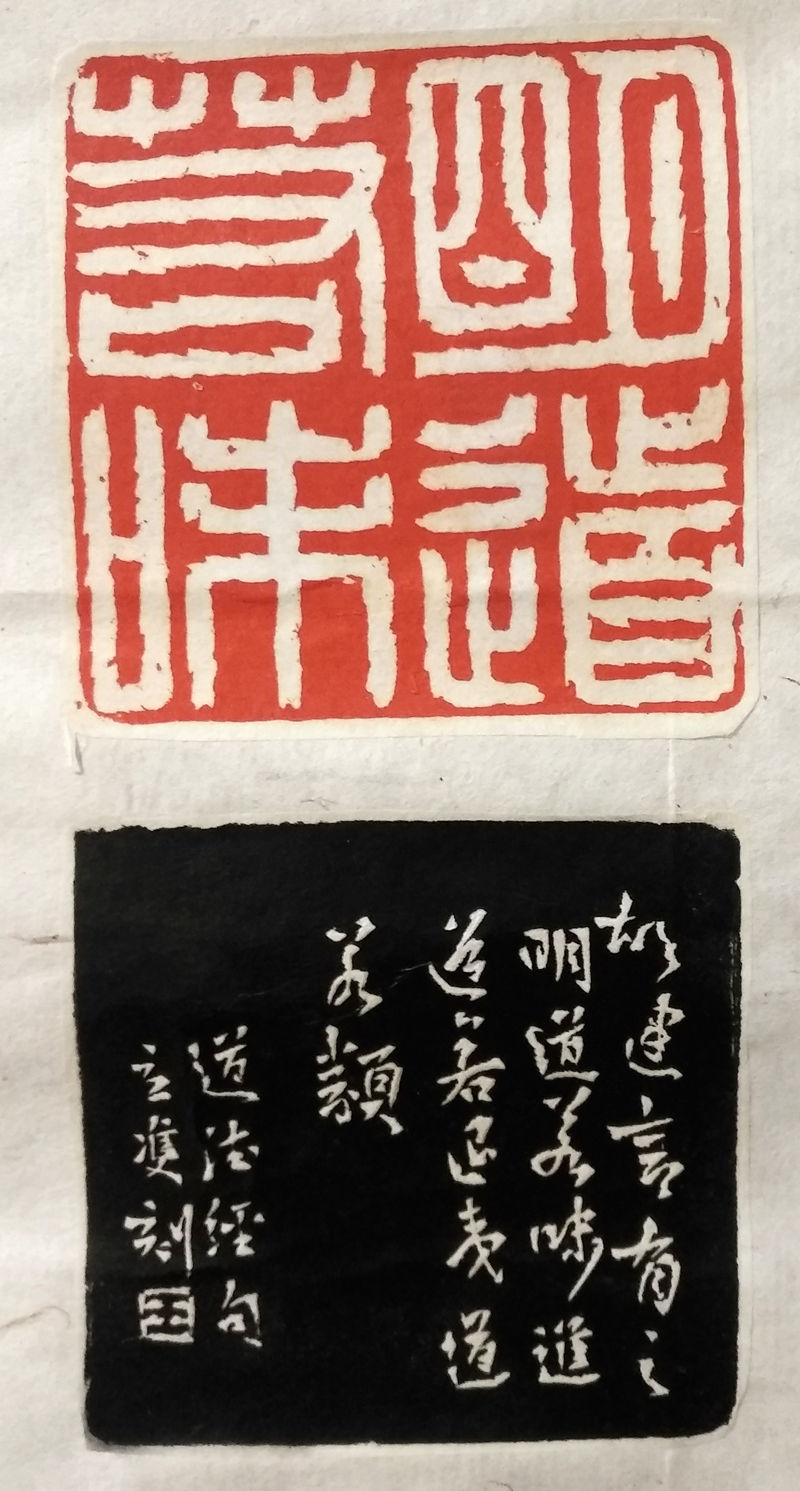 明道
若昧
故建言有之
明道若昧進
道若退夷道
若纇
道德經句
刻
王